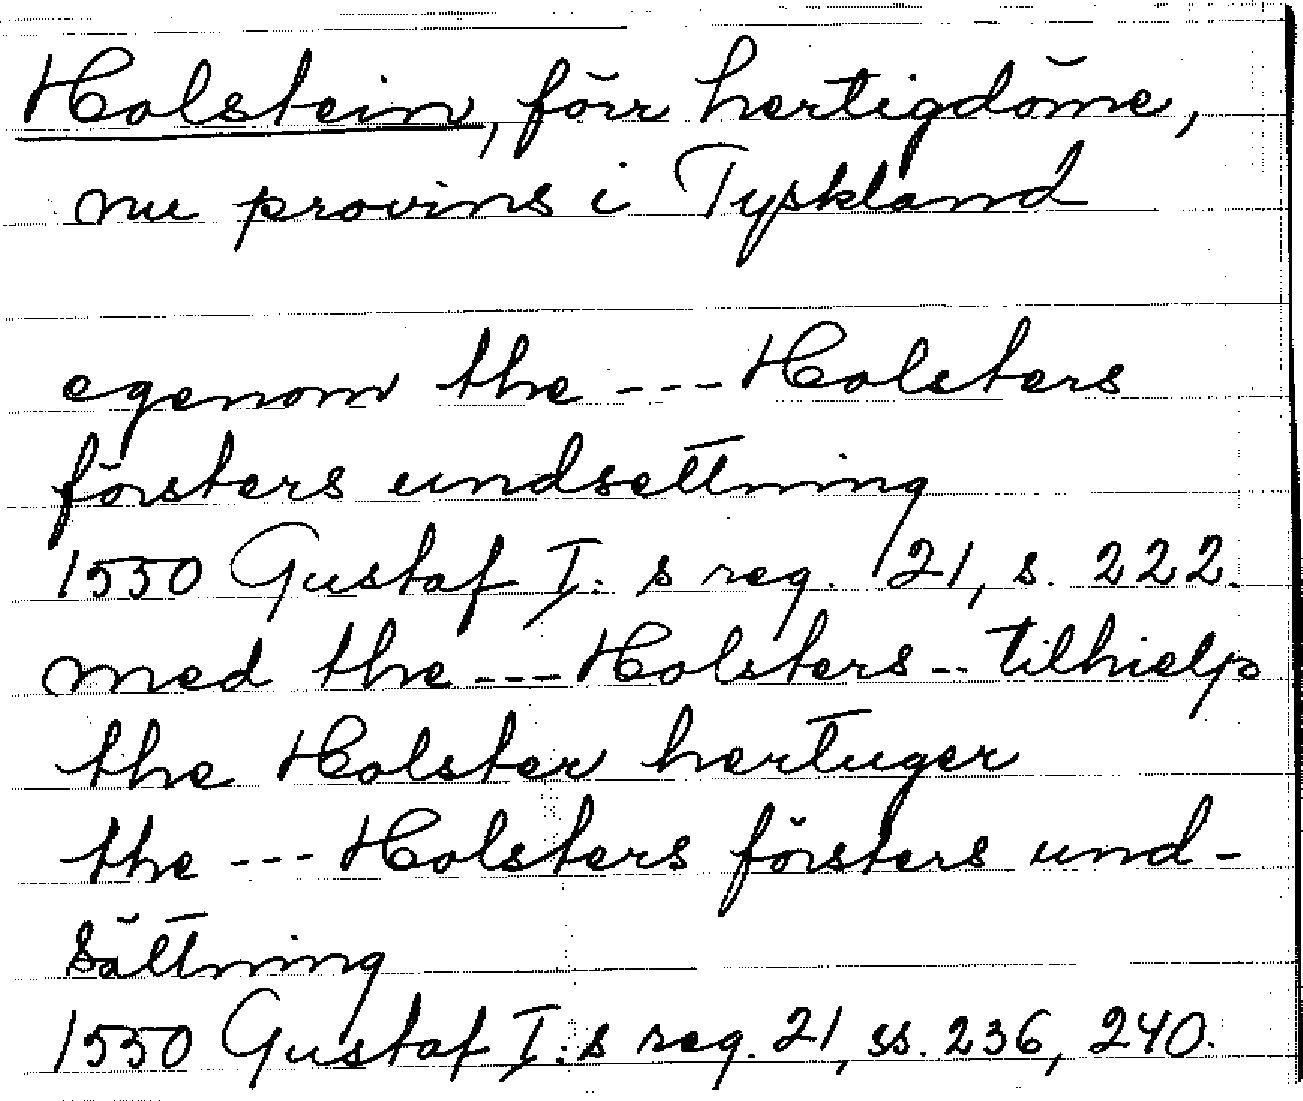 Holstein, förr hertigdöme,
nu provins i Tyskland
egenom the --- Holsters
försters undsettning
1550 Gustaf I:s reg. 21, s. 222.
med the --- Holsters -- tilhielp
the Holster hertuger
the --- Holsters försters und-
sättning
1550 Gustaf I:s reg. 21, ss. 236, 240.